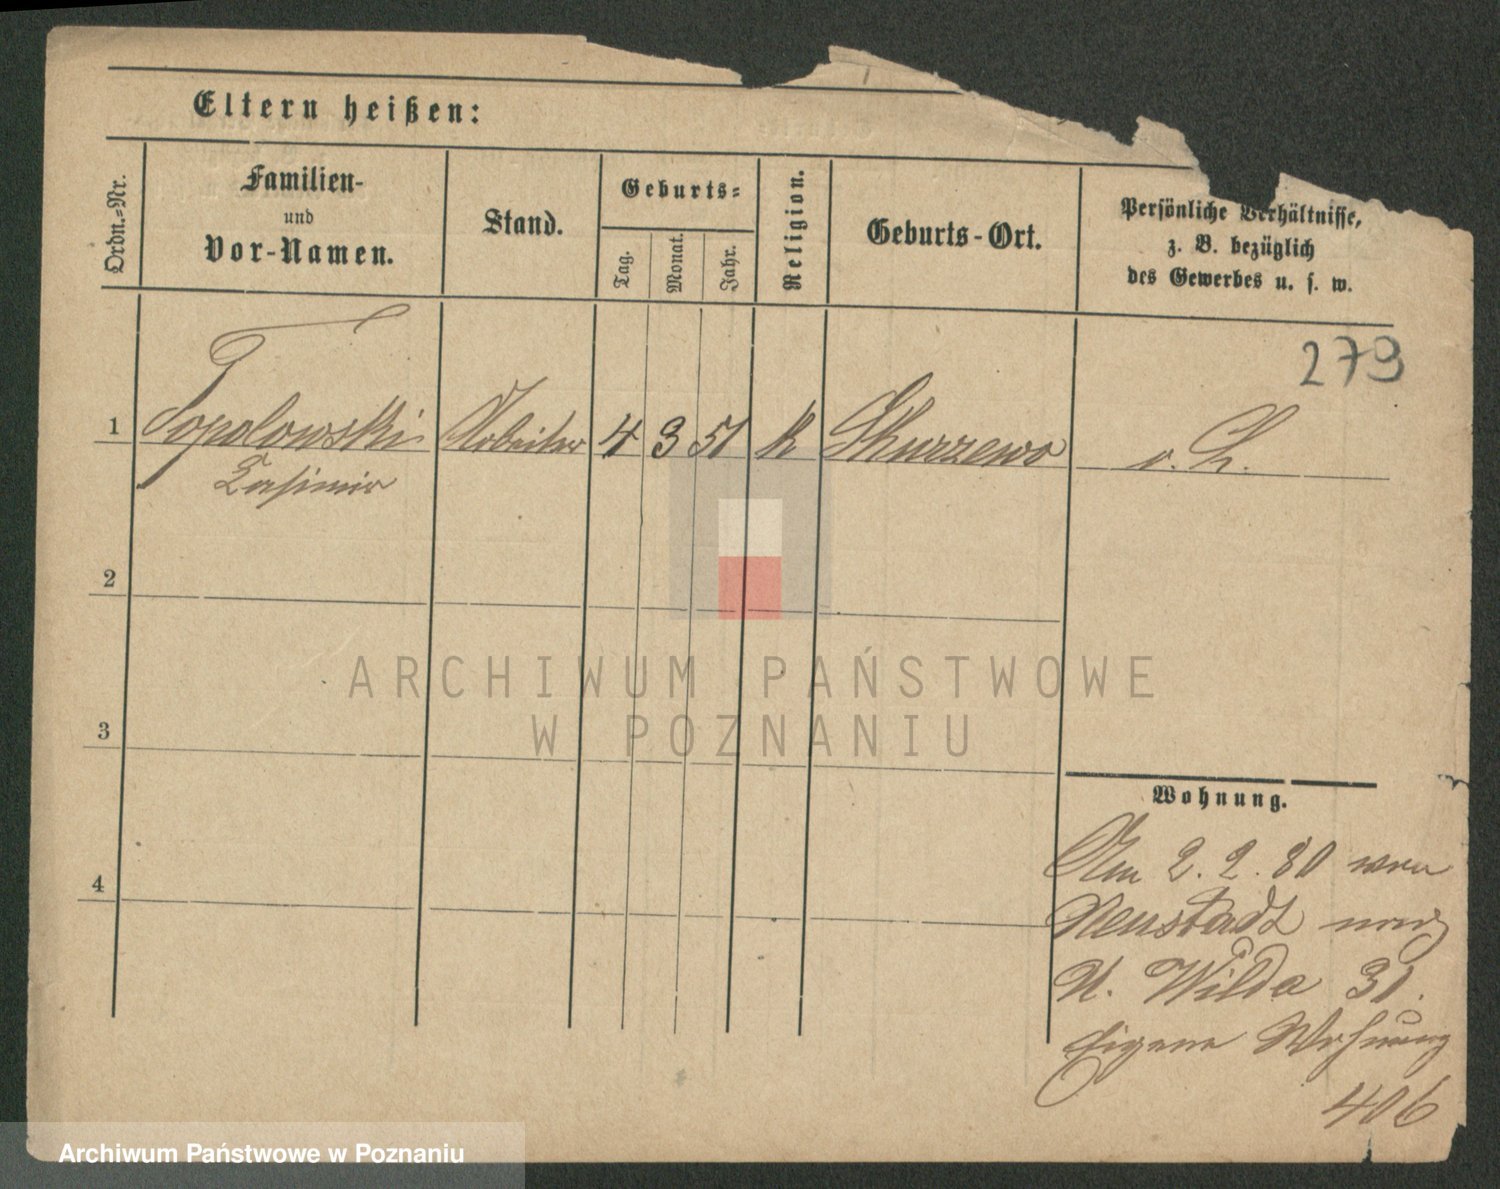 Eltern heißen:
Ordn.=Nr.
Familien-
und
Vor-Namen.
Stand.
Geburts=
Tag.
Monat.
Jahr.
Religion.
Geburts-Ort.
Persönliche Verhältnisse,
z. B. bezüglich
des Gewerbes u. s. w.
279
1 Topolowski Arbeiter 4 3 51 k Skurzewo o. L.
Casimir
2
3
4
Wohnung.
Am 2. 2. 80 von
Neustadt nach
U. Wilda 31.
Eigene Wohnung
406
ARCHIWUM PAŃSTWOWE
W POZNANIU
Archiwum Państwowe w Poznaniu